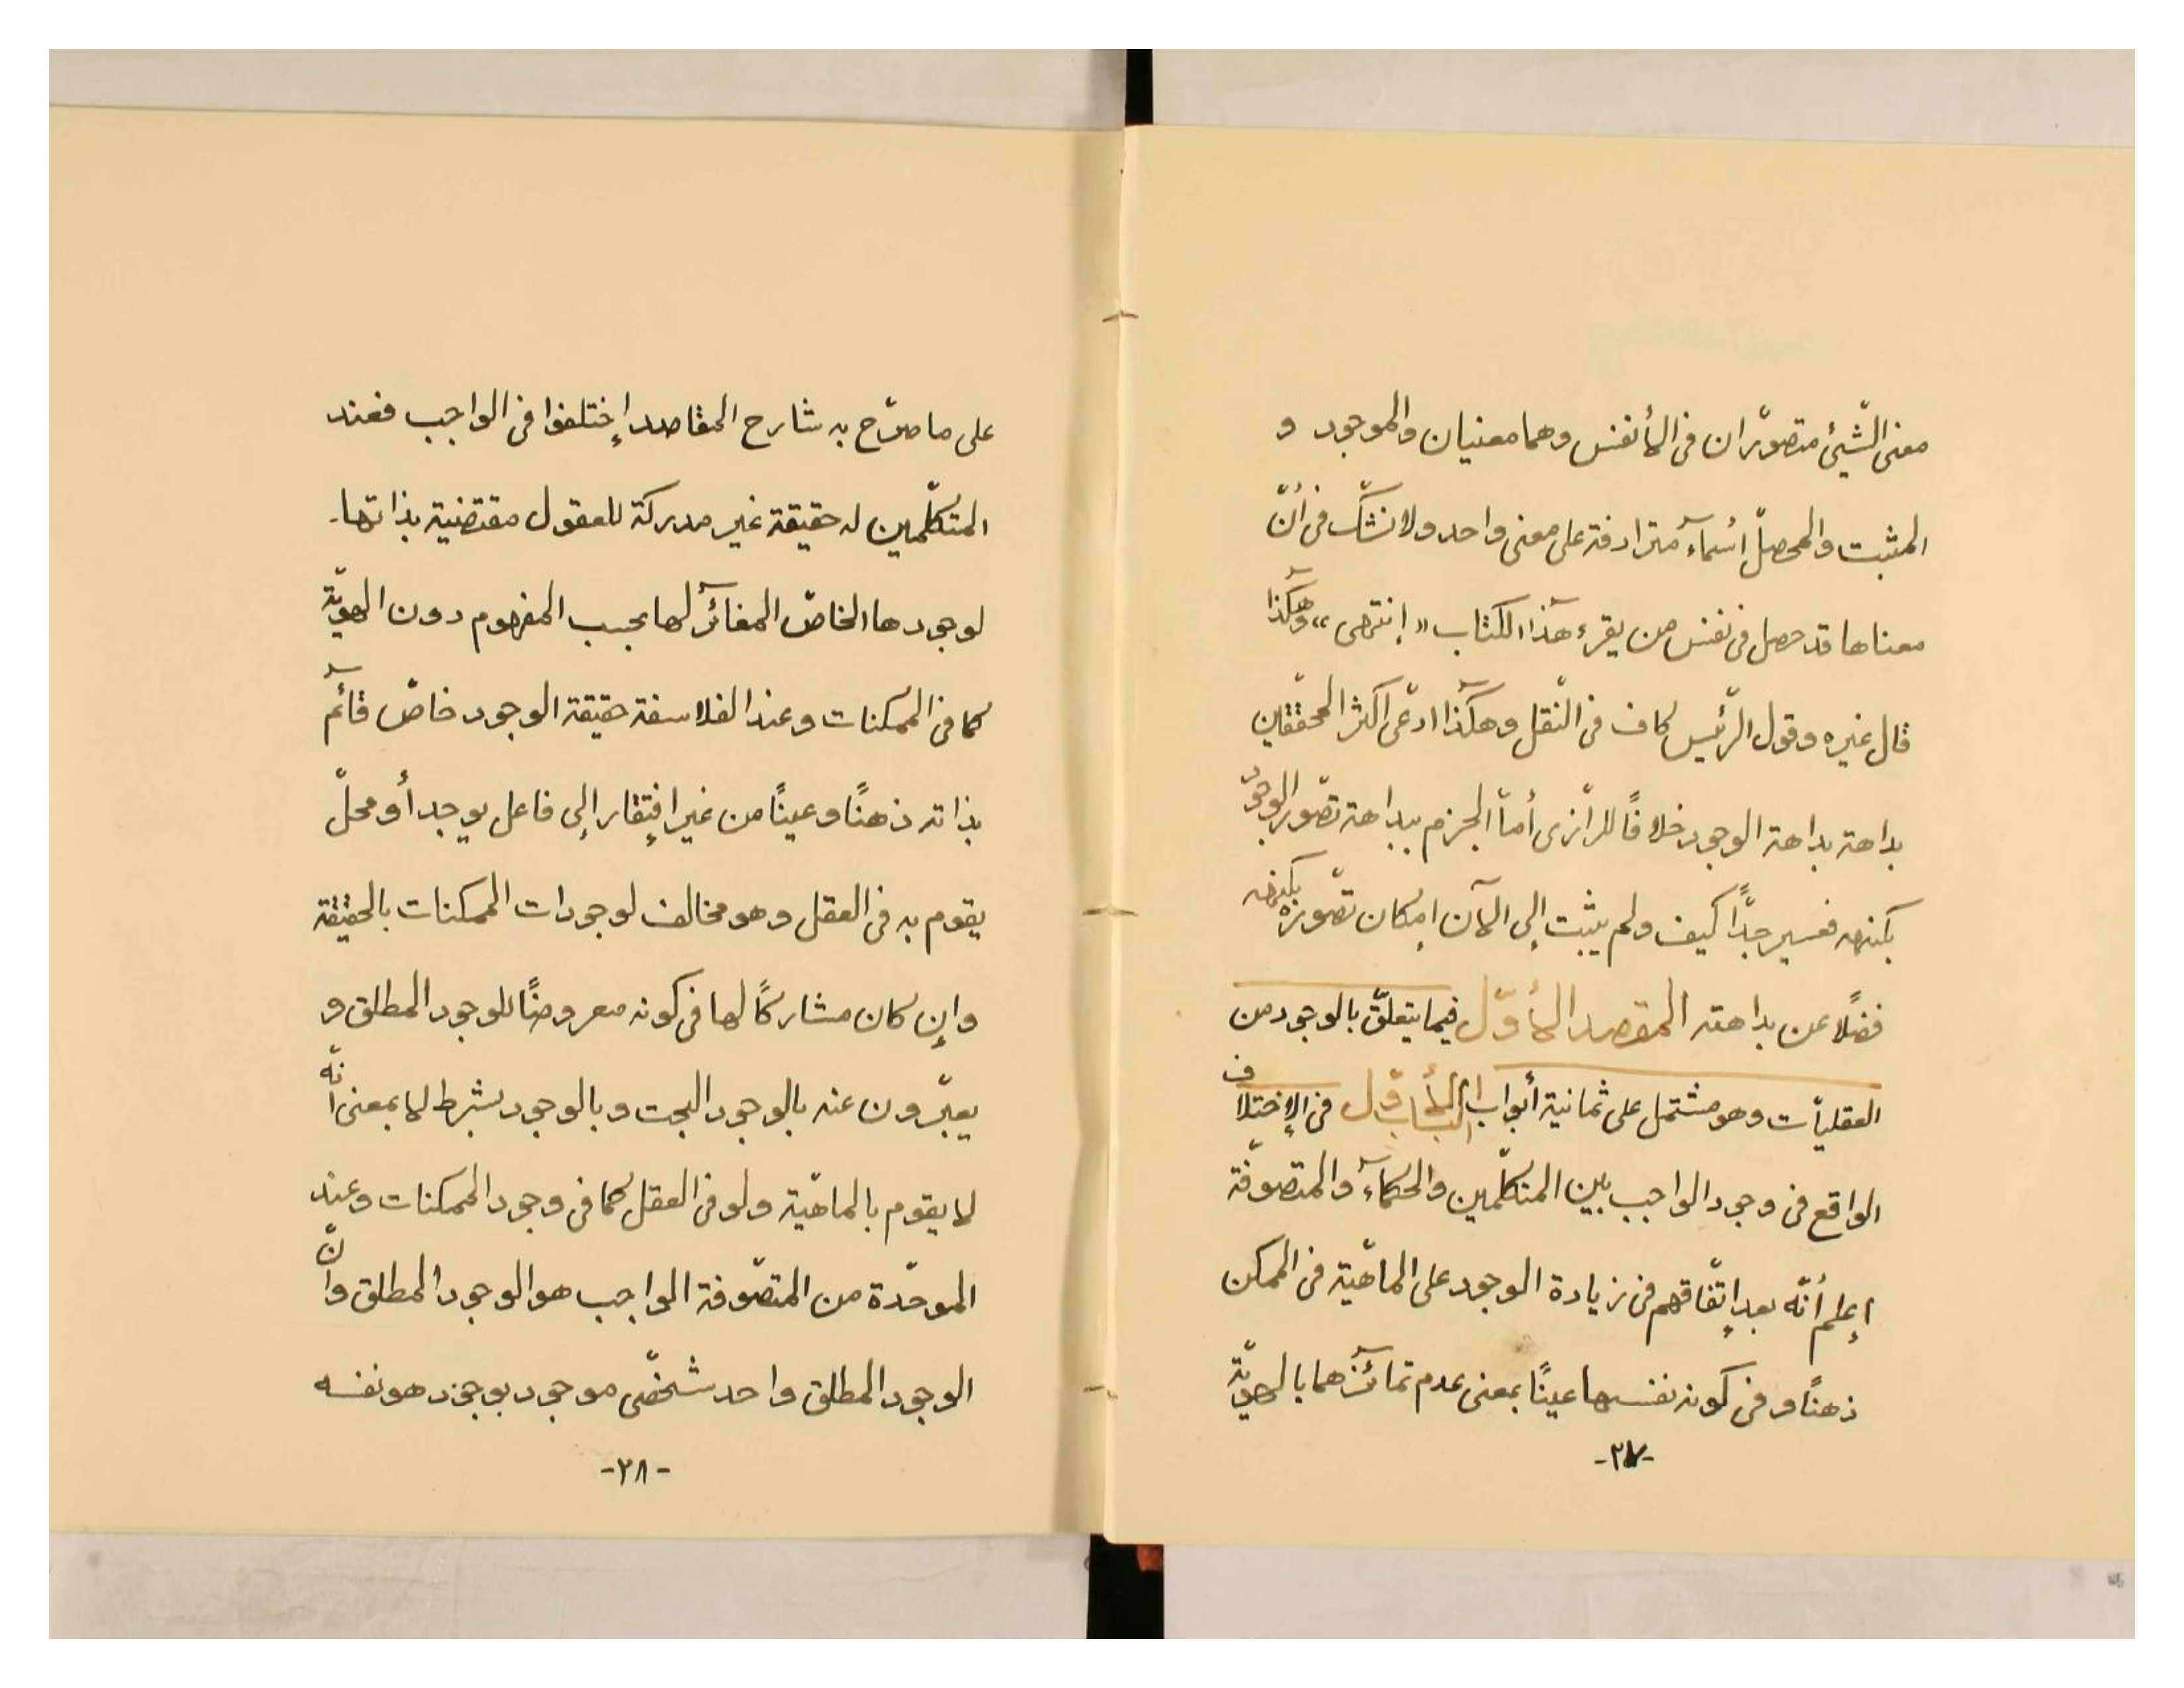 معنى الشّيئ متصوّران فى الأنفس وهما معنيان والموجود و
المثبت والمحصلّ أسمآء مترادفة على معنى واحد ولا نشكّ فى أنّ
معناها قد حصل فى نفس من يقرء هذا الكتاب «إنتهى» وهكذا
قال غيره وقول الرّئيس كاف فى النّقل وهكذا ادعّى اكثر المحقّقين
بداهة بداهة الوجود خلافًا للرّازى أمّا الجزم ببداهة تصّور الوجود
بكنهه فعسير جدًّا كيف ولم يثبت إلى الآن امكان تصّوره بكنهه
فضلًا عن بداهته المقصد الأوّل فيما يتعلّق بالوجود من
العقليّات وهو مشتمل على ثمانية أبواب الباب الأوّل فى الإختلاف
الواقع فى وجود الواجب بين المتكلّمين والحكمآء والمتصوّفة
إعلم أنّه بعد إتّفاقهم فى زيادة الوجود على الماهّية فى الممكن
ذهنًا وفى كونه نفسها عينًا بمعنى عدم تمآئزهما بالهويّة
-٢٧-
على ما صرّح به شارح المقاصد إختلفوا فى الواجب فعند
المتكلّمين له حقيقة غير مدركة للعقول مقتضية بذاتها-
لوجودها الخاصّ المغآئر لها بحسب المفهوم دون الهويّة
كما فى الممكنات وعند الفلاسفة حقيقة الوجود خاصّ قآئم
بذاته ذهنًا وعينًا من غير إفتقار إلى فاعل يوجد أو محلّ
يقوم به فى العقل وهو مخالف لوجودات الممكنات بالحقيقة
وإن كان مشاركًا لها فى كونه معروضًا للوجود المطلق و
يعبّرون عنه بالوجود البحت وبالوجود بشرط لا بمعنى أنّه
لا يقوم بالماهّية ولو فى العقل كما فى وجود الممكنات وعند
الموحّدة من المتصّوفة الواجب هو الوجود المطلق وانّ
الوجود المطلق واحد شخصّى موجود بوجود هو نفسه
-٢٨-